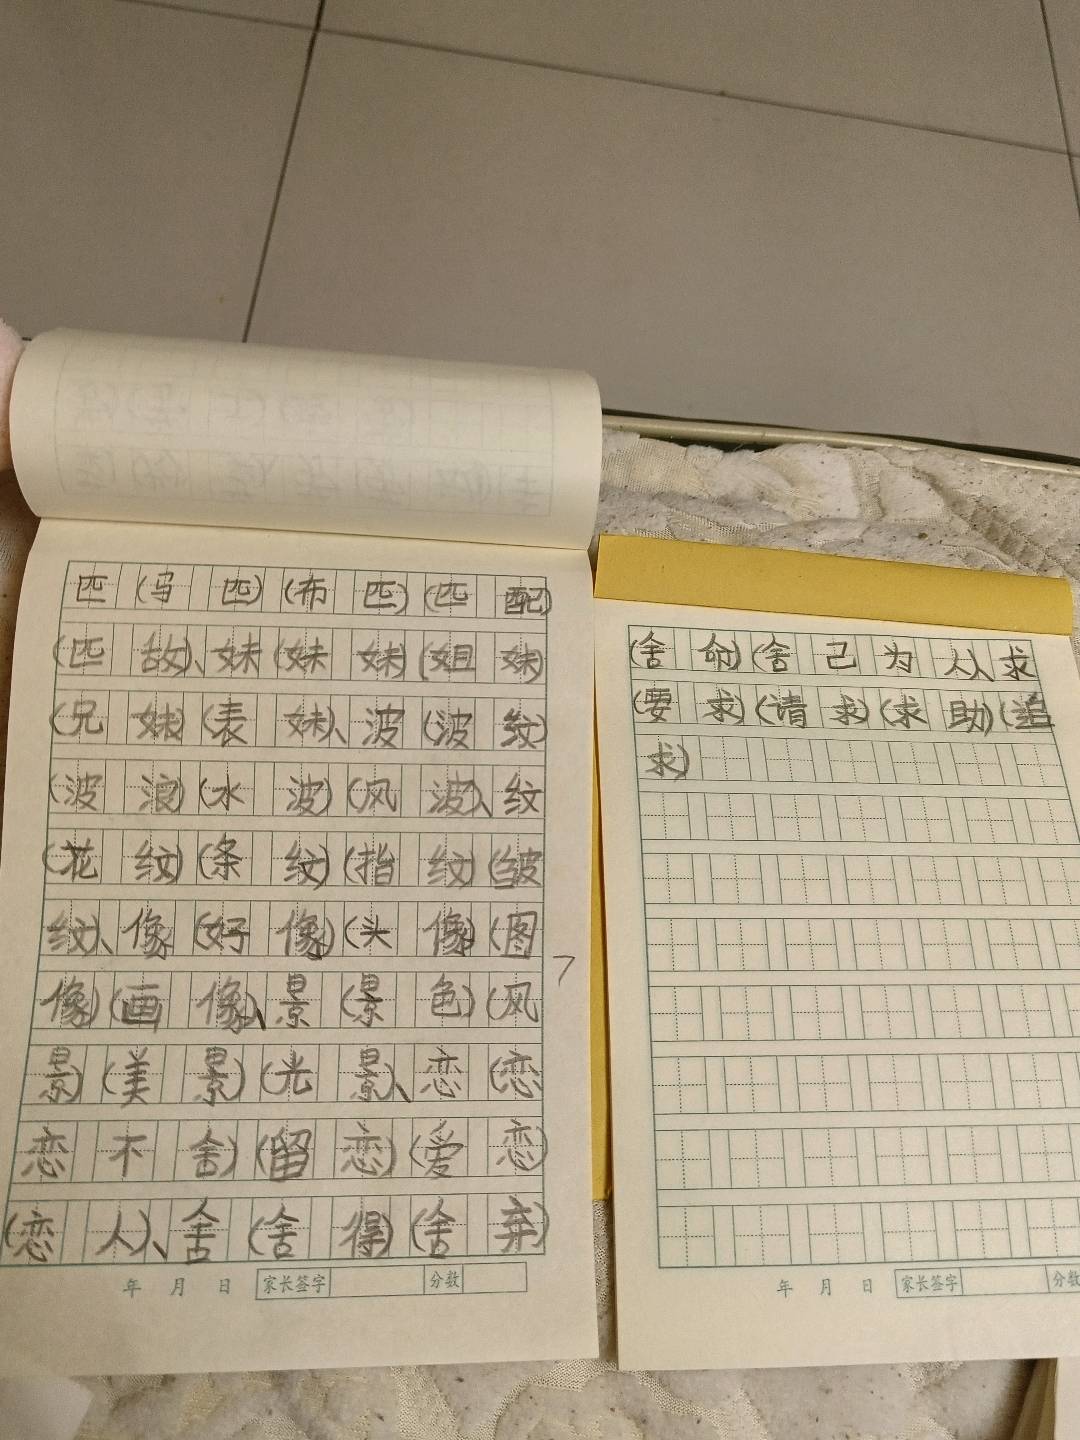 匹(马匹)(布匹)(匹配)
(匹敌)、妹(妹妹)(姐妹)
(兄妹)(表妹)、波(波纹)
(波浪)(水波)(风波)、纹
(花纹)(条纹)(指纹)(皱
纹)、像(好像)(头像)(图
像)(画像)、景(景色)(风
景)(美景)(光景)、恋(恋
恋不舍)(留恋)(爱恋)
(恋人)、舍(舍得)(舍弃)
年 月 日 家长签字 分数
(舍命)(舍己为人)、求
(要求)(请求)(求助)(追
求)
年 月 日 家长签字 分数